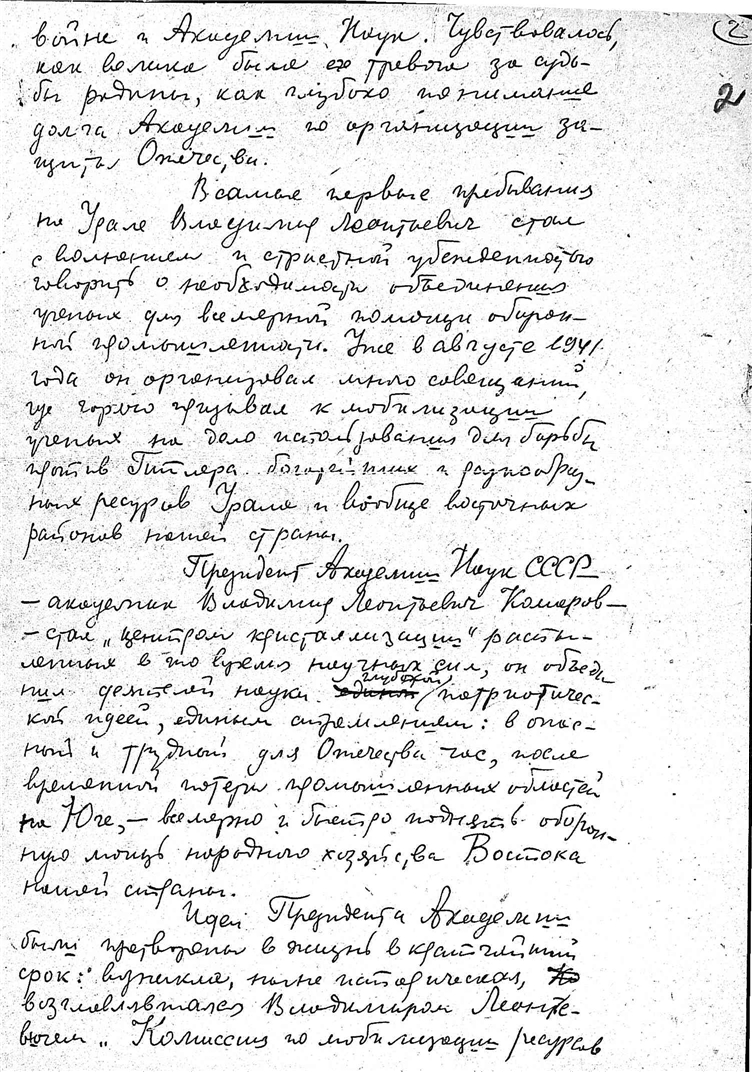 2
войне и Академии Наук. Чувствовалось,
как велика была его тревога за судь-
2
бы родины, как глубоко понимание
долга Академии по организации за-
щиты Отечества.
В самые первые пребывания
на Урале Владимир Леонтьевич стал
с волнением и страстной убежденностью
говорить о необходимости объединения
ученых для всемерной помощи оборон-
ной промышленности. Уже в августе 1941
года он организовал много совещаний,
где горячо призывал к мобилизации
ученых на дело использования для борьбы
против Гитлера богатейших и разнообраз-
ных ресурсов Урала и вообще восточных
районов нашей страны.
Президент Академии Наук СССР –
– академик Владимир Леонтьевич Комаров –
– стал „центром кристаллизации" распы-
ленных в то время научных сил, он объеди
нил деятелей науки глубокой патриотичес-
кой идеей, единым стремлением: в опас-
ный и трудный для Отечества час, после
временной потери промышленных областей
на Юге, – всемерно и быстро поднять оборон-
ную мощь народного хозяйства Востока
нашей страны.
Идеи Президента Академии
были претворены в жизнь в кратчайший
срок: возникла, ныне историческая,
возглавлявшаяся Владимиром Леонть-
евичем „Комиссия по мобилизации ресурсов